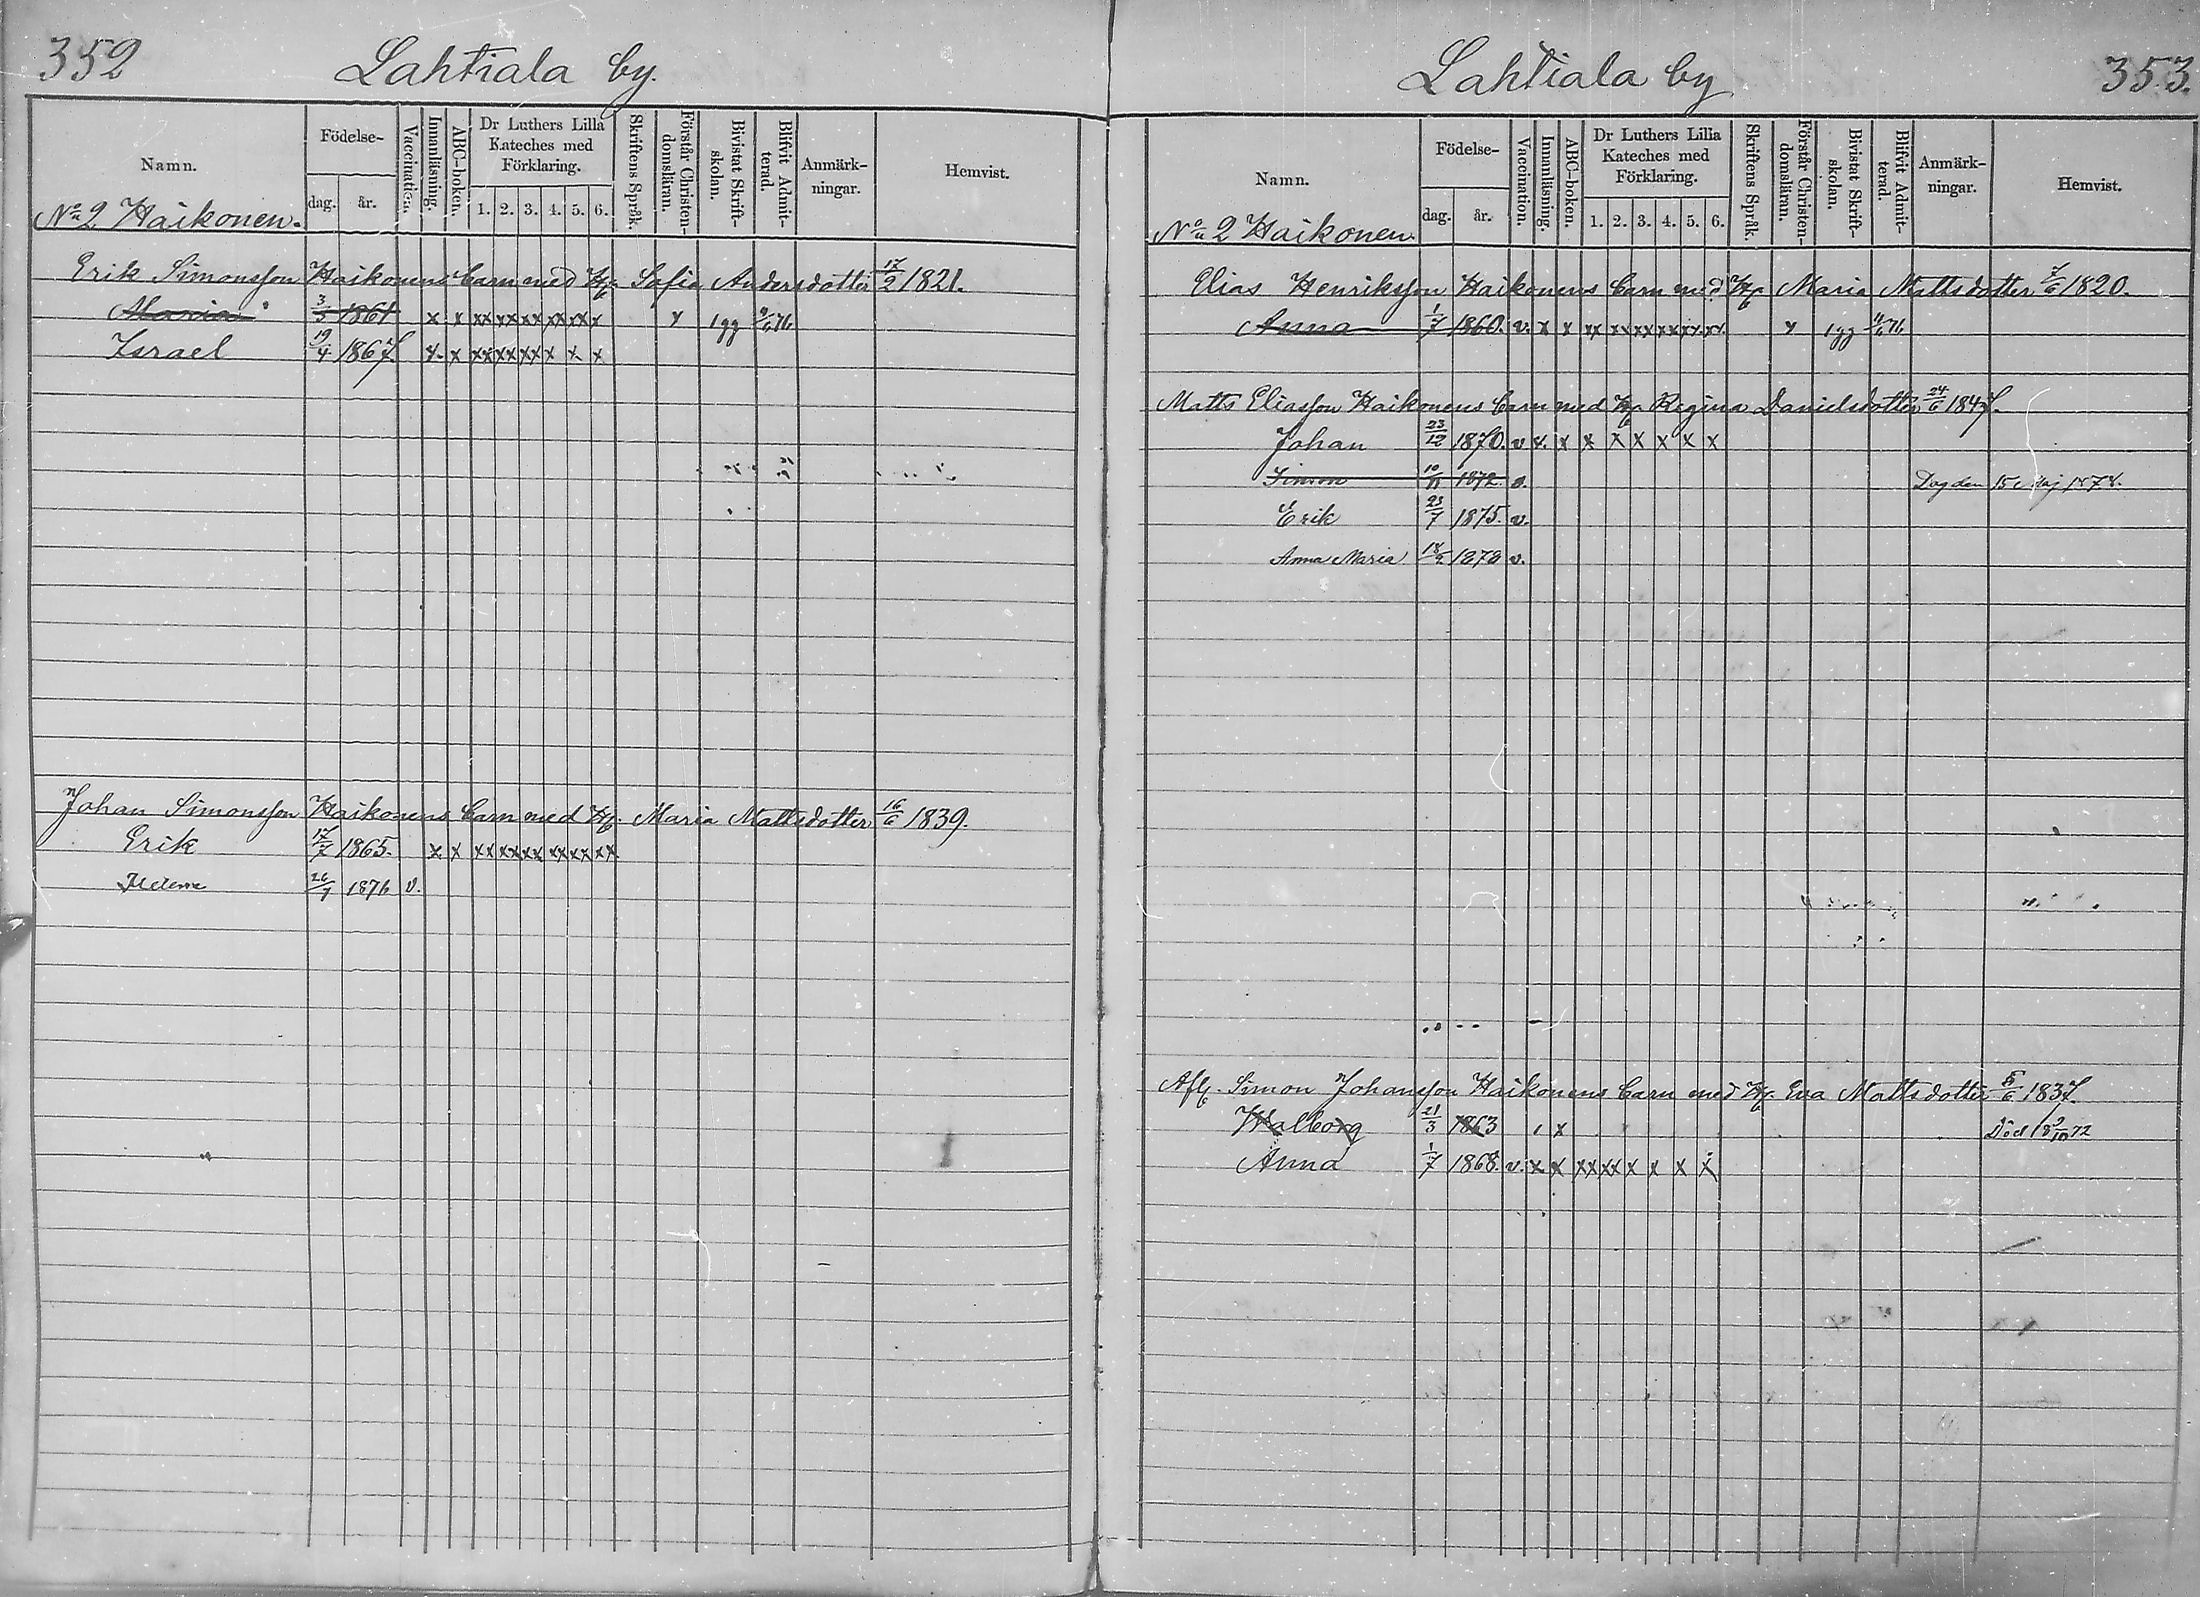 352
Lahtiala by.
Namn.
Födelse-
dag.
år.
Vaccination.
Innanläsning.
ABC-boken.
Dr Luthers Lilla
Kateches med
Förklaring.
1. 2. 3. 4. 5. 6.
Skriftens Språk.
Förstår Christen-
domsläran.
Bivistat Skrift-
skolan.
Blifvit Admit-
terad.
Anmärk-
ningar.
Hemvist.
No 2 Haikonen.
Erik Simonsson Haikonens barn med Hu Sofia Andersdotter 17/2 1821.
Maria 3/3 1861 x x xx xx xx xx xx x x 1gg 9/6 76
Israel 19/4 1867. x. x xx xx xx x x x
Johan Simonsson Haikonens barn med Hu. Maria Mattsdotter 16/6 1839.
Erik 17/7 1865. x x xx xx xx xx xx xx
Helena 26/7 1876 v.
Lahtiala by
353.
Namn.
Födelse-
dag.
år.
Vaccination.
Innanläsning.
ABC-boken.
Dr Luthers Lilla
Kateches med
Förklaring.
1. 2. 3. 4. 5. 6.
Skriftens Språk.
Förstår Christen-
domsläran.
Bivistat Skrift-
skolan.
Blifvit Admit-
terad.
Anmärk-
ningar.
Hemvist.
No 2 Haikonen.
Elias Henriksson Haikonens barn med Hu Maria Mattsdotter 7/6 1820.
Anna 1/7 1860. v. x x xx xx xx xx xx xx x 1gg 11/6 76
Matts Eliasson Haikonens barn med Hu Regina Danielsdotter 24/6 1847.
Johan 23/12 1870. v x. x x x x x x x
Simon 10/11 1872. v. Dog den 15 Maj 1878.
Erik 23/7 1875. v.
Anna Maria 18/2 1878 v.
Afl. Simon Johansson Haikonens barn med Hu. Eva Mattsdotter 5/6 1837.
Walborg 21/3 1863 x Död 18 9/10 72
Anna 1/7 1868. v. x x xx xx x x x x